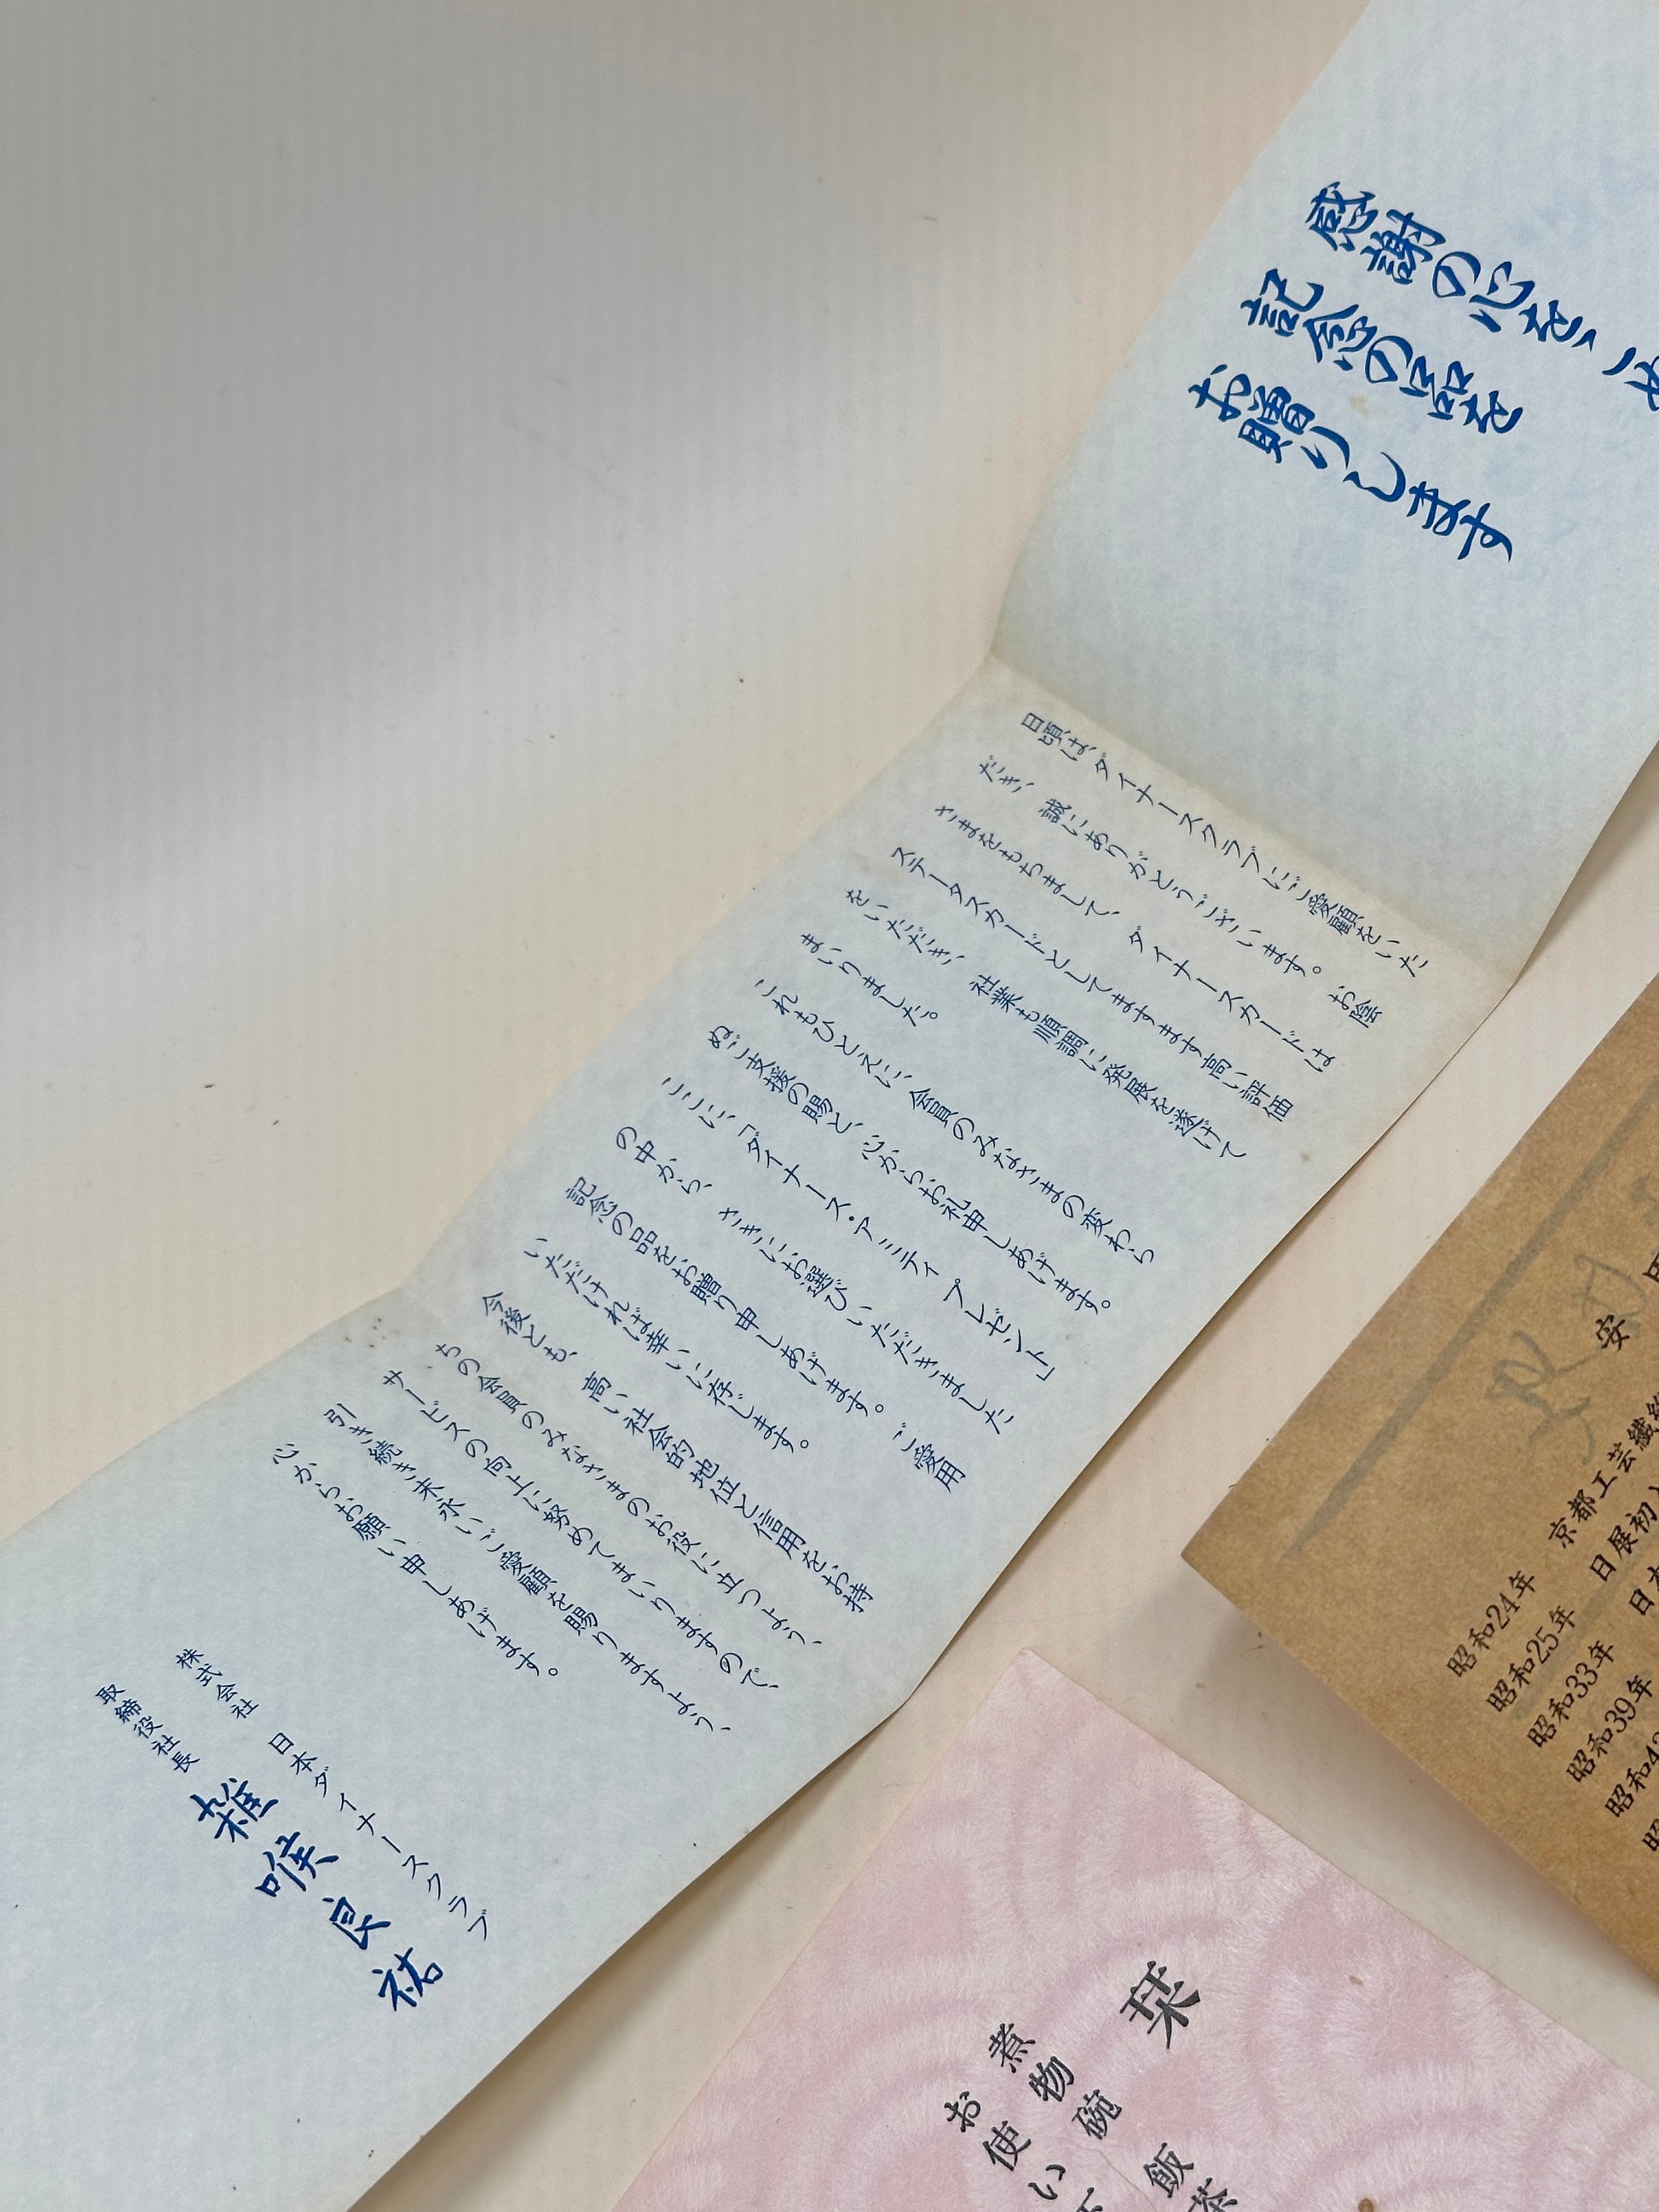 感謝の心を、こめ
記念の品を
お贈りします
日頃は、ダイナースクラブにご愛顧をいた
だき、誠にありがとうございます。お陰
さまをもちまして、ダイナースカードは
ステータスカードとしてますます高い評価
をいただき、社業も順調に発展を遂げて
まいりました。
これもひとえに、会員のみなさまの変わら
ぬご支援の賜と、心からお礼申しあげます。
ここに、「ダイナース・アミティ プレゼント」
の中から、さきにお選びいただきました
記念の品をお贈り申しあげます。ご愛用
いただければ幸いに存じます。
今後とも、高い社会的地位と信用をお持
ちの会員のみなさまのお役に立つよう、
サービスの向上に努めてまいりますので、
引き続き末永いご愛顧を賜りますよう、
心からお願い申しあげます。
株式会社 日本ダイナースクラブ
取締役社長 雑喉良祐
安
昭和24年 京都工芸繊
昭和25年 日展初
昭和33年 日本
昭和39年
昭和4
栞
煮物碗 飯茶
お使い